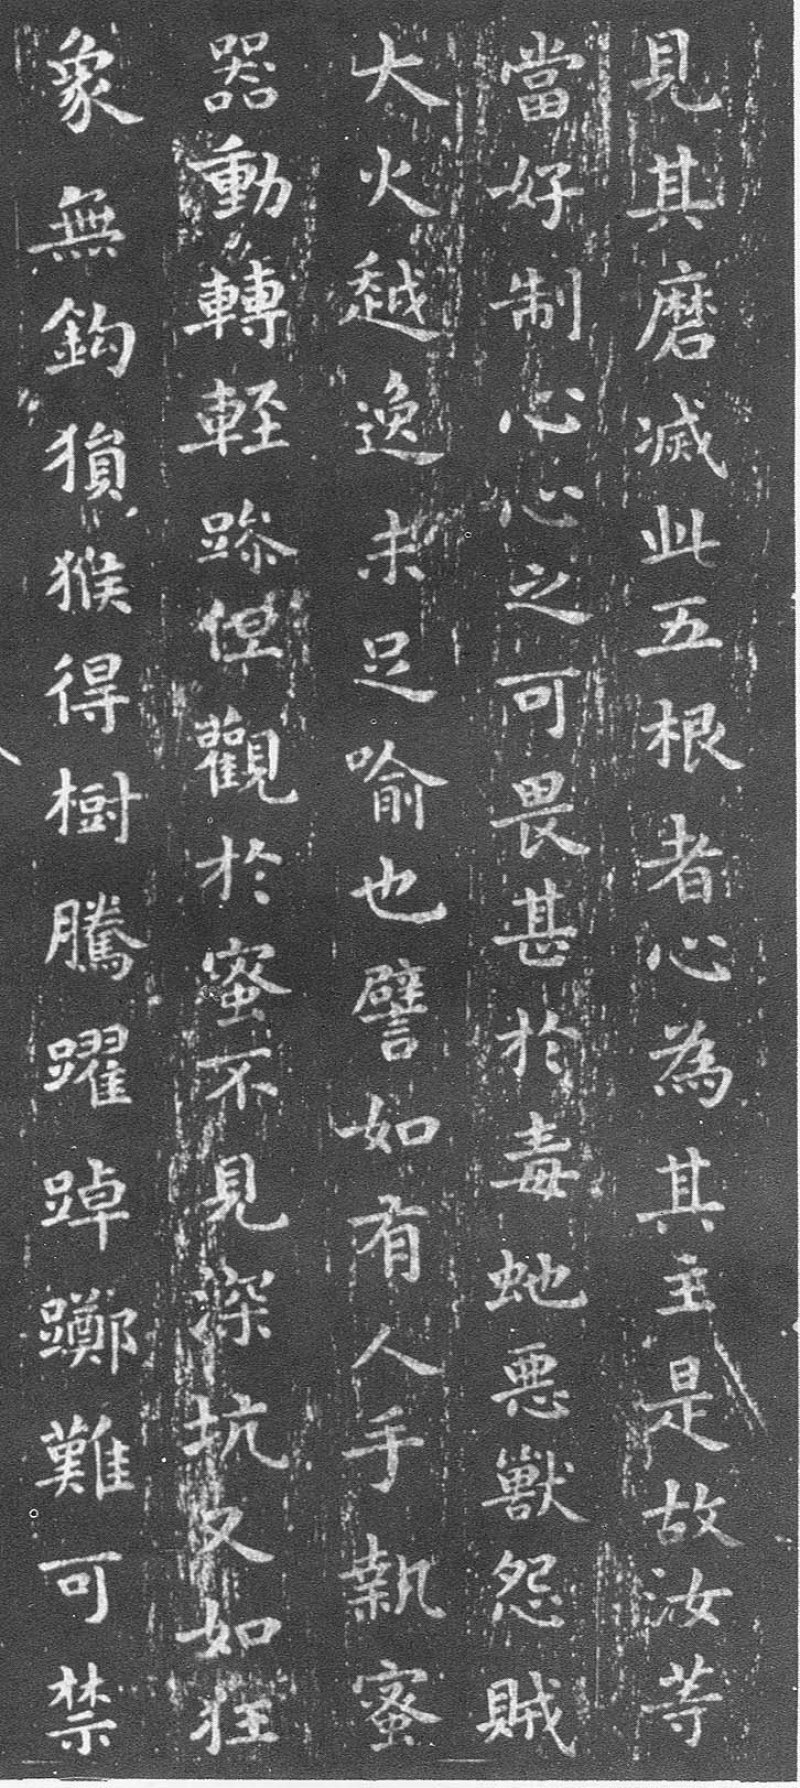 見其磨滅此五根者心為其主是故汝等
當好制心心之可畏甚於毒虵惡獸怨賊
大火越逸未足喻也譬如有人手執蜜
器動轉輕躁但觀於蜜不見深坑又如狂
象無鈎猨猴得樹騰躍踔躑難可禁